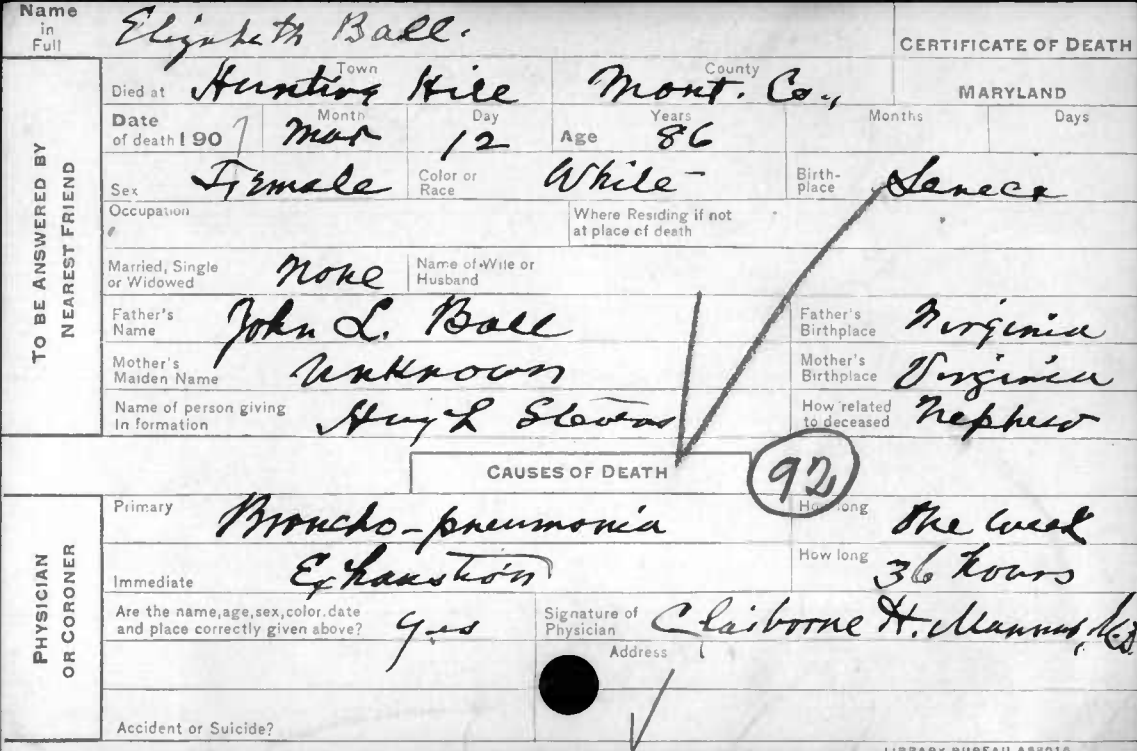 Name in Full Elizabeth Ball.
CERTIFICATE OF DEATH
TO BE ANSWERED BY NEAREST FRIEND
Died at Hunting Hill Town Mont. Co., County MARYLAND
Date of death 1907 Month Mar Day 12 Age Years 86 Months Days
Sex Female Color or Race White Birth-place Seneca
Occupation Where Residing if not at place of death
Married, Single or Widowed None Name of Wife or Husband
Father's Name John L. Ball Father's Birthplace Virginia
Mother's Maiden Name Unknown Mother's Birthplace Virginia
Name of person giving In formation Hugh Stevens How related to deceased Nephew
CAUSES OF DEATH 92
PHYSICIAN OR CORONER
Primary Broncho-pneumonia How long One week
Immediate Exhaustion How long 36 hours
Are the name, age, sex, color, date and place correctly given above? Yes Signature of Physician Claiborne H. Mannar, M.D.
Address
Accident or Suicide?
LIBRARY BUREAU